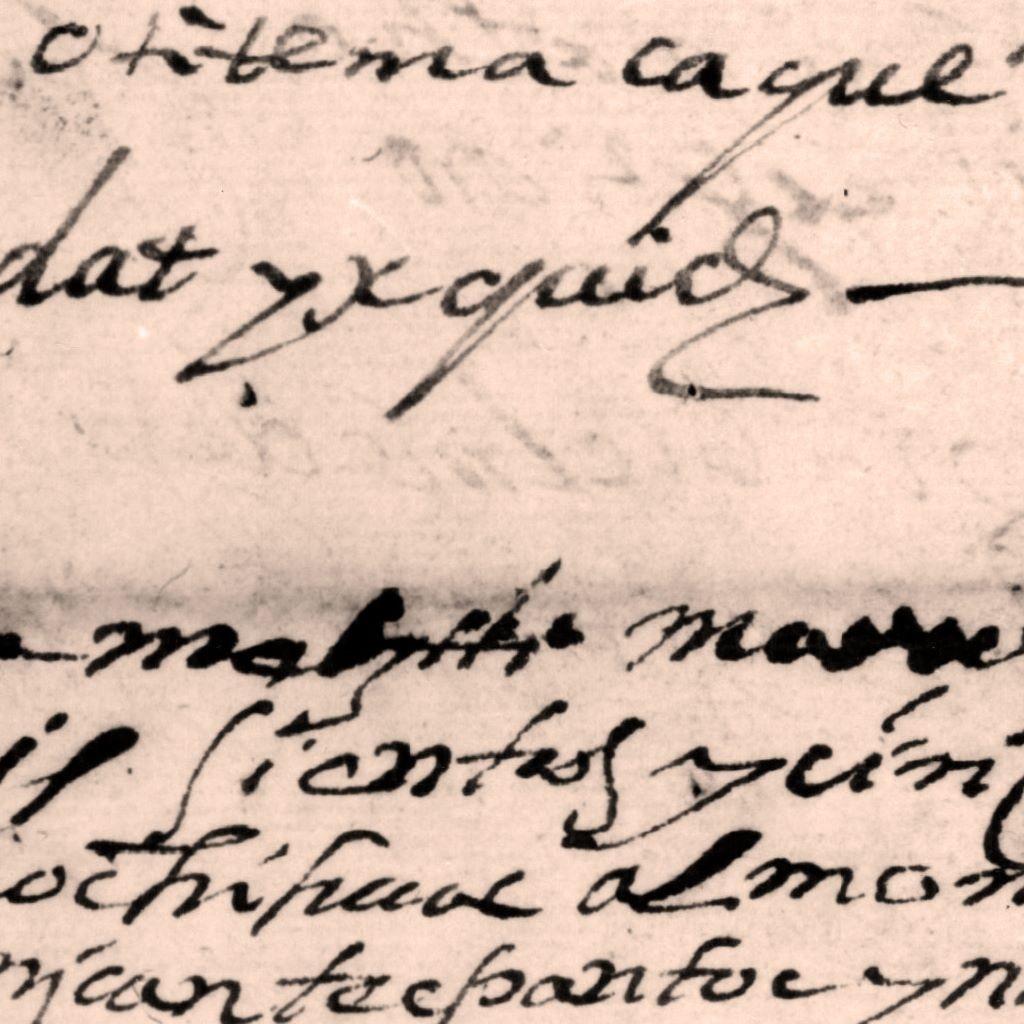 otitema caque
dat yxquich
ma
il sientos y cin
ochihuac almon
nican tecpantoc yn